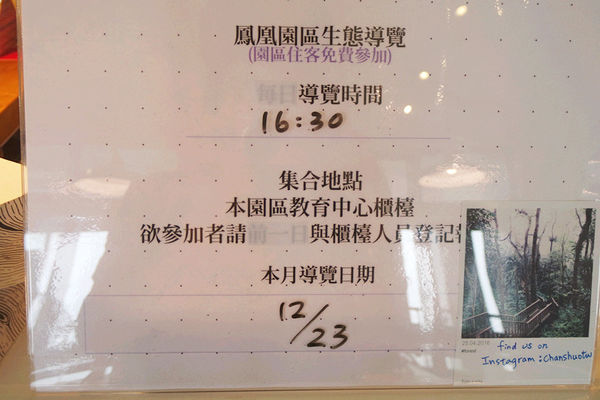 鳳凰園區生態導覽
(園區住客免費參加)
每日導覽時間
16:30
集合地點
本園區教育中心櫃檯
欲參加者請前一日與櫃檯人員登記
本月導覽日期
12/23
25.04.2016
#forest
find us on
Instagram:chanshuotw